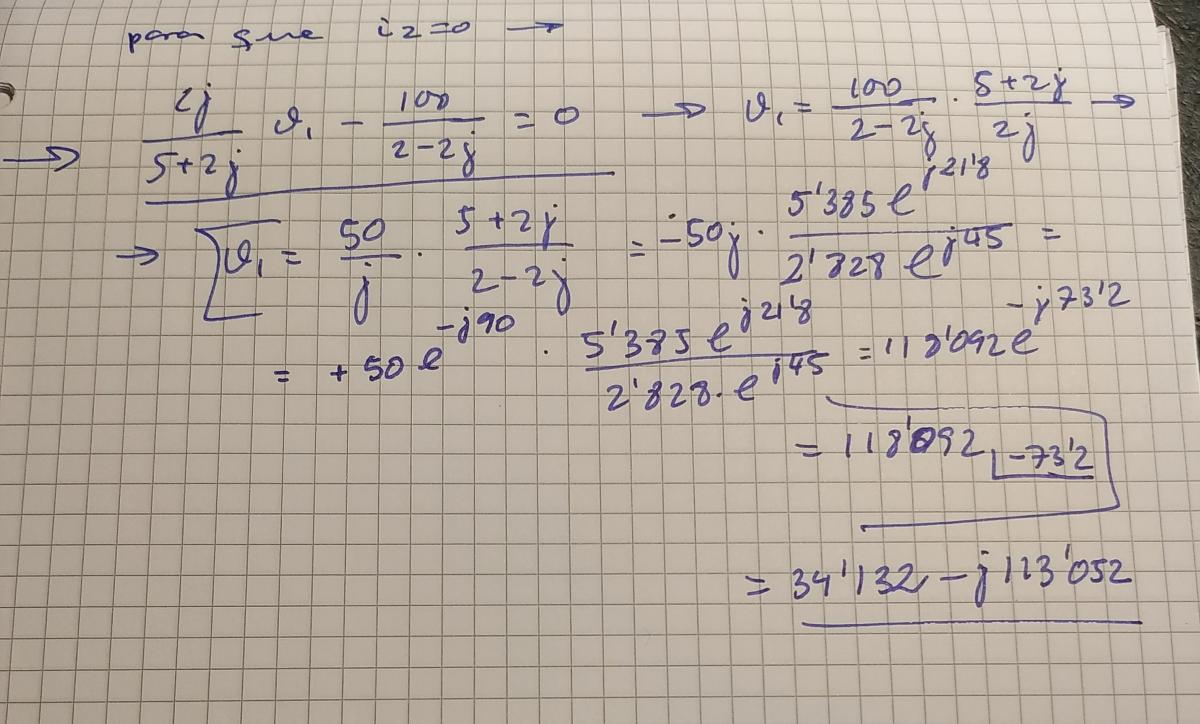 para que i2=0 →
→ 2j/(5+2j) ϑ₁ − 100/(2−2j) = 0 → ϑ₁ = 100/(2−2j) · (5+2j)/(2j) →
→ ϑ₁ = 50/j · (5+2j)/(2−2j) = −50j · 5'385 e^(j21'8)/(2'828 e^(j45)) =
= +50 e^(−j90) · 5'385 e^(j21'8)/(2'828 · e^(j45)) = 118'092 e^(−j73'2)
= 118'092 ∟−73'2
= 34'132 − j113'052